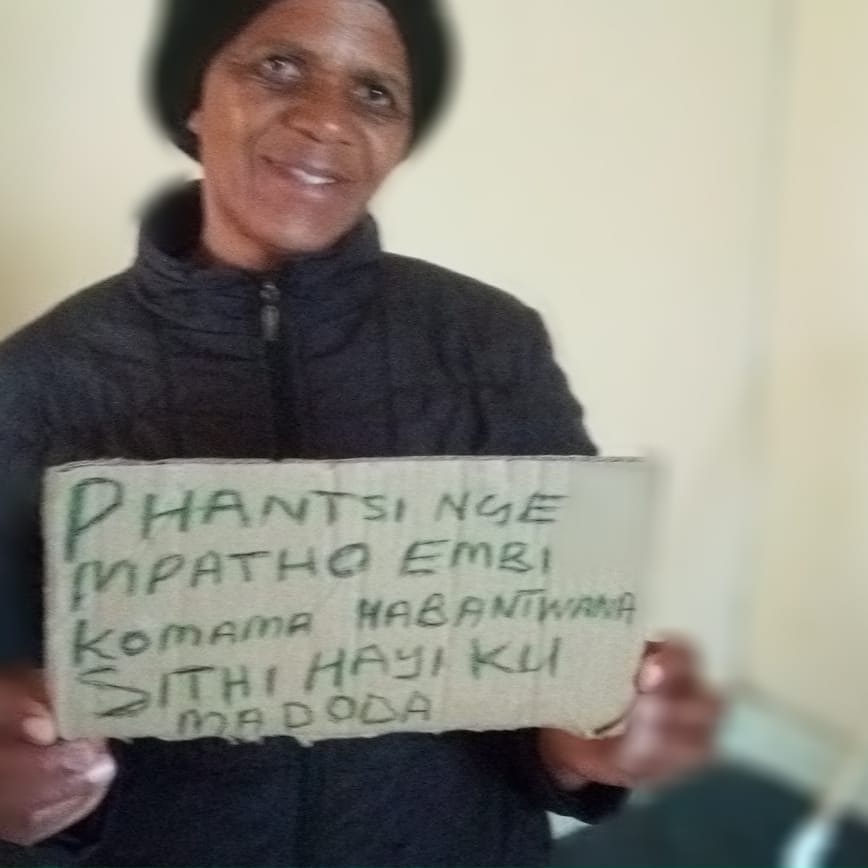 PHANTSI NGE
MPATHO EMBI
KOMAMA NABANTWANA
SITHI HAYI KU
MADODA